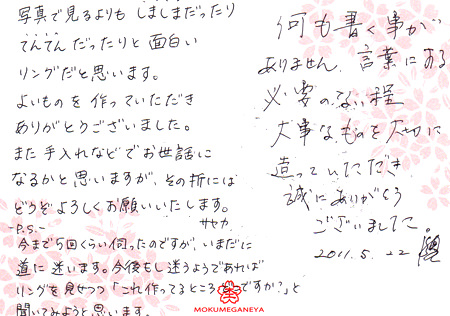 写真で見るよりも しましまだったり
てんてんだったりと面白い
リングだと思います。
よいものを作っていただき
ありがとうございました。
また手入れなどでお世話に
なるかと思いますが、その折には
どうぞよろしくお願いいたします。
サヤカ
-P.S.-
今まで5回くらい伺ったのですが、いまだに
道に迷います。今後もし迷うようであれば
リングを見せつつ「これ作ってるところどこですか?」と
聞いてみようと思います。
何も書く事が
ありません。言葉にある
必要のない程
大事なものを大切に
造っていただき
誠にありがとう
ございました。
2011.5.22
MOKUMEGANEYA